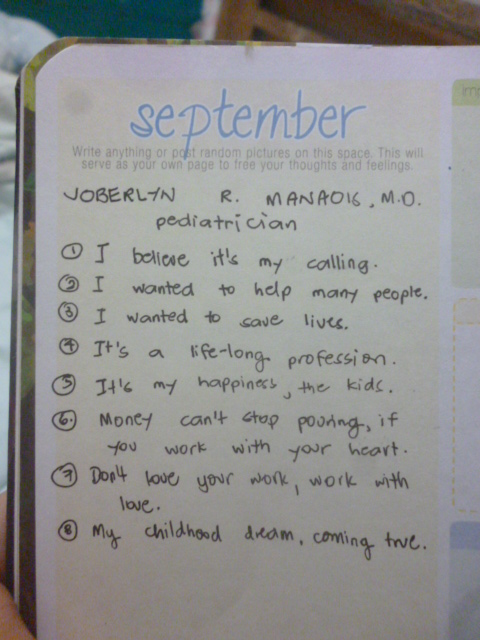 september
Write anything or post random pictures on this space. This will
serve as your own page to free your thoughts and feelings.
JOBERLYN R. MANAOIS, M.D.
pediatrician
① I believe it's my calling.
② I wanted to help many people.
③ I wanted to save lives.
④ It's a life-long profession.
⑤ It's my happiness, the kids.
⑥ Money can't stop pouring, if
you work with your heart.
⑦ Don't love your work, work with
love.
⑧ My childhood dream, coming true.